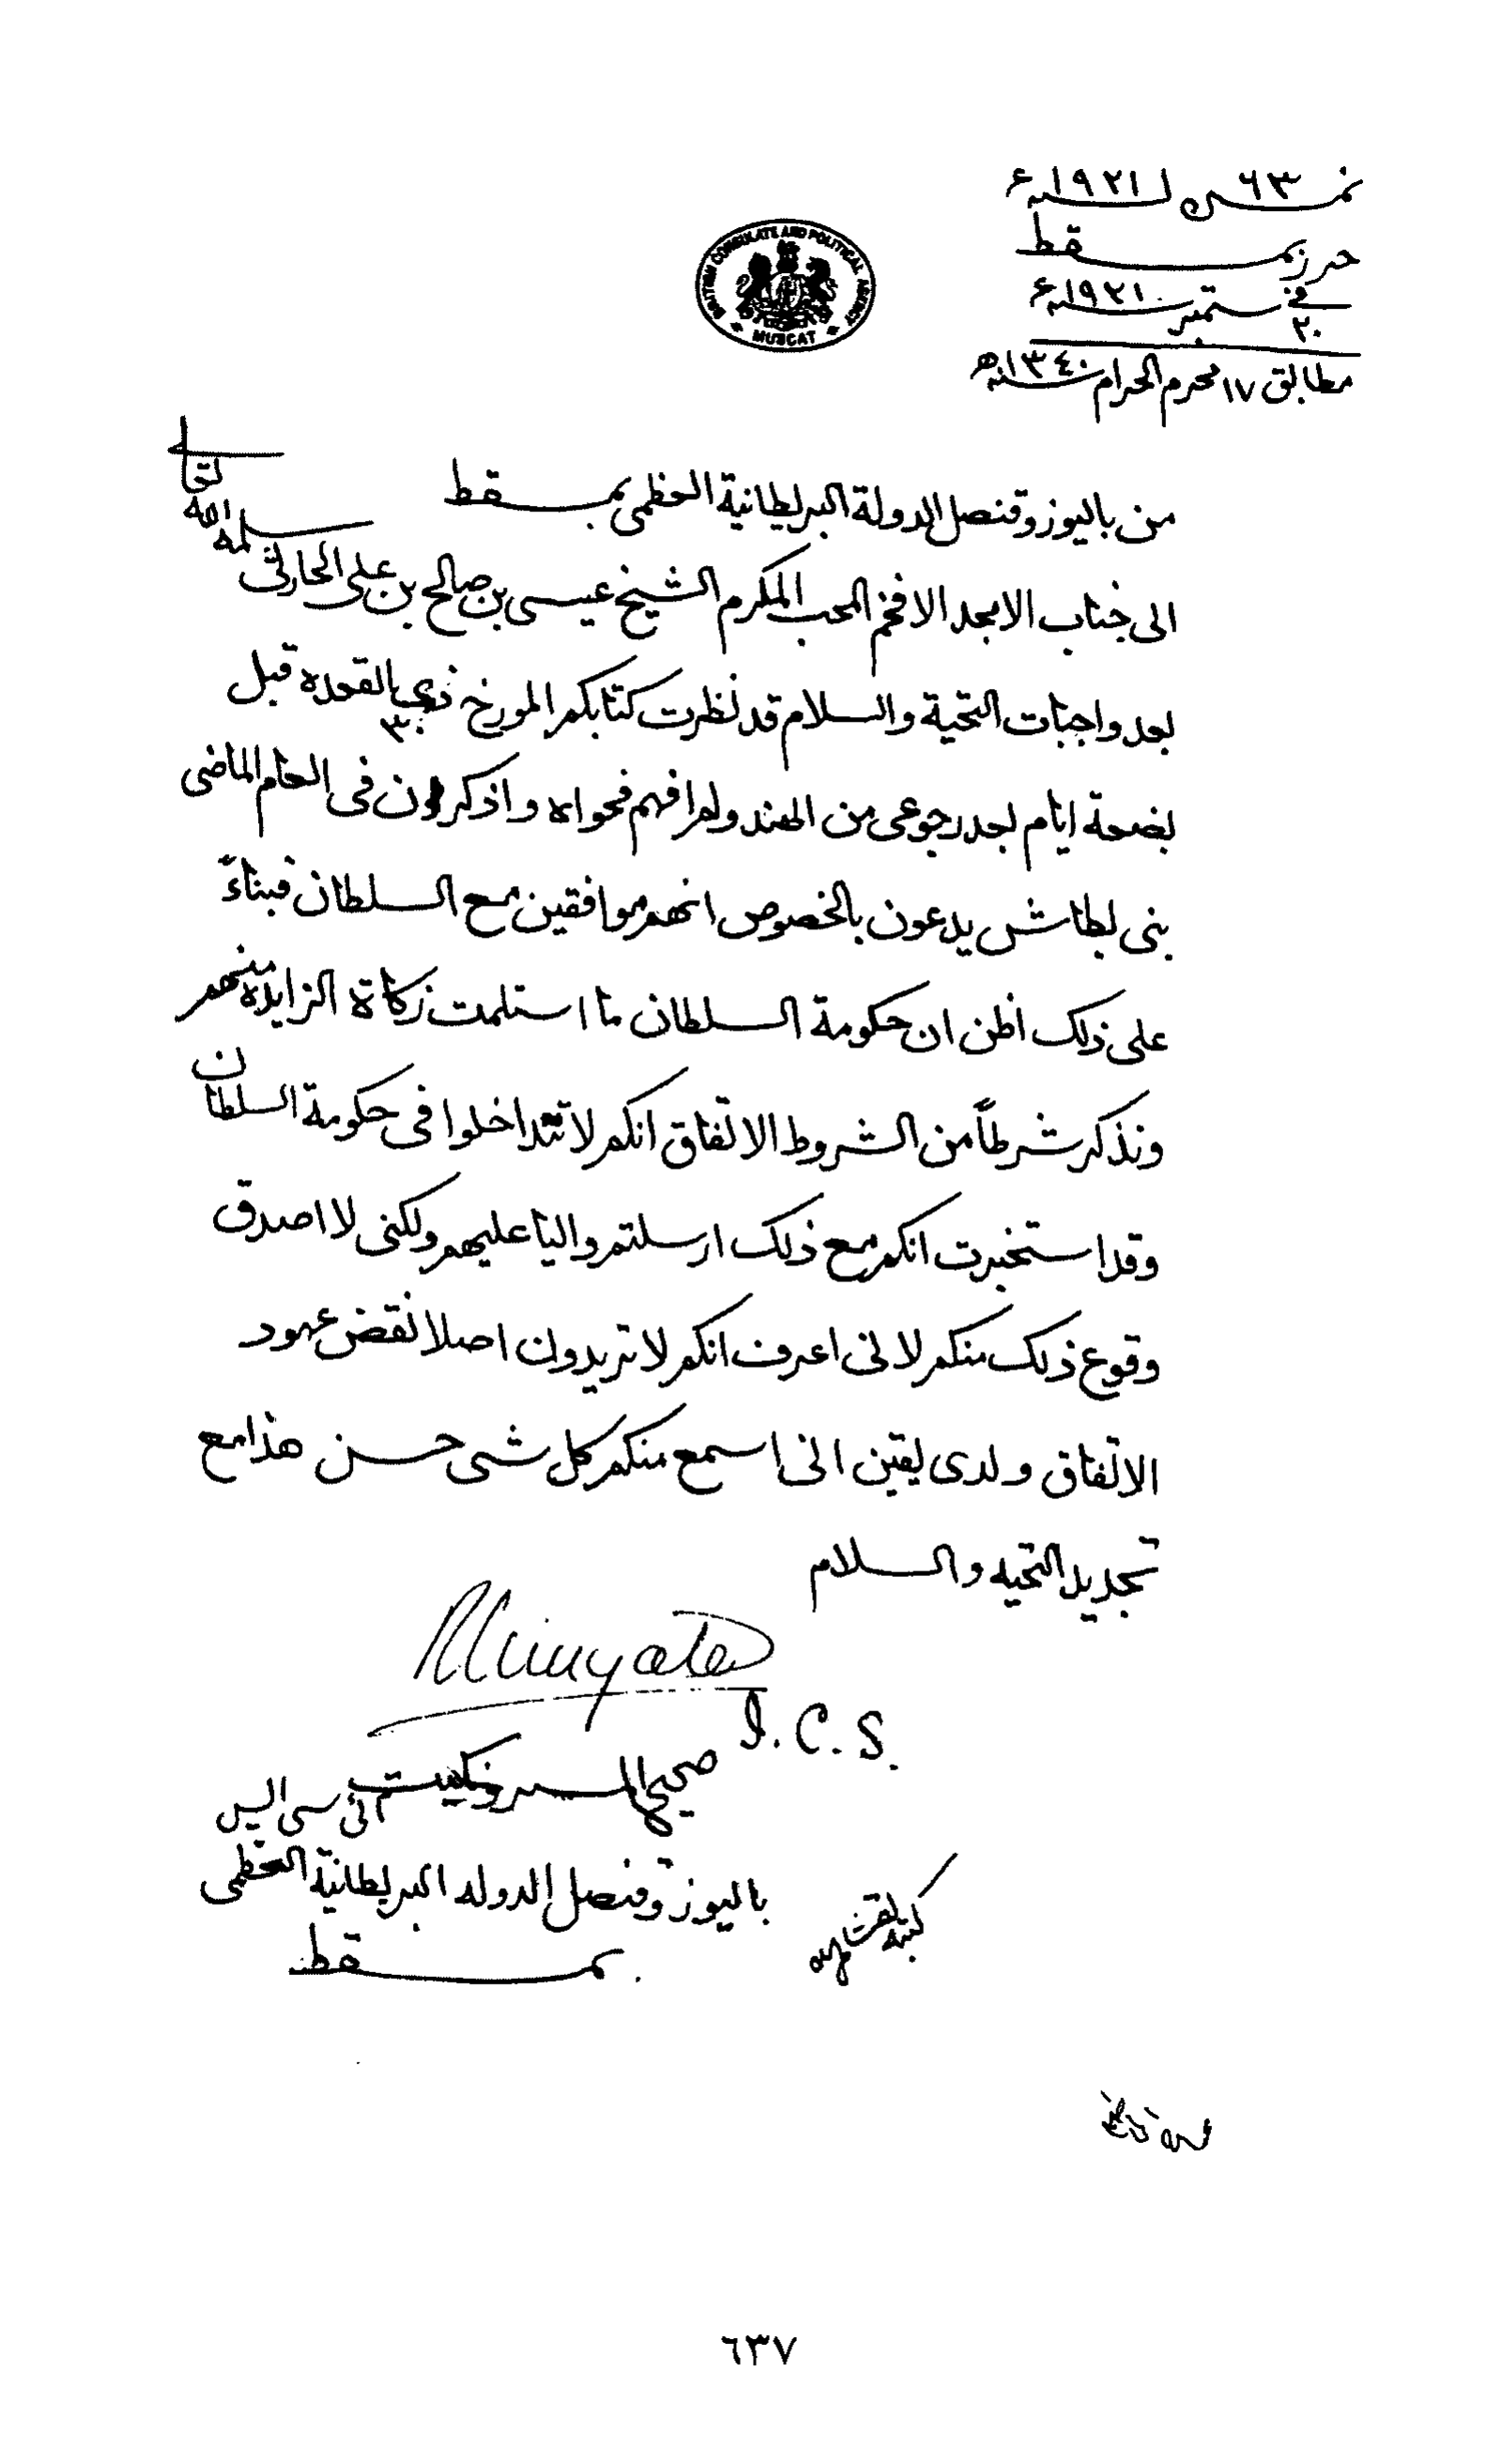 نمــ٦٣ــرة لسنة ١٩٢١ء
حرر بمسقط
في ٢٠ ستمبر سنة ١٩٢١ء
مطابق ١٧ محرم الحرام سنة ١٣٤٠ه
BRITISH CONSULATE AND POLITICAL AGENCY
MUSCAT
من باليوز وقنصل الدولة البريطانية العظمى بمسقط
الى جناب الامجد الافخم المحب المكرم الشيخ عيسى بن صالح بن علي الحارثي سلمه الله تعالى
بعد واجبات التحية والسلام قد نظرت كتابكم المورخ ٣٠ ذي القعده قبل
بضعة ايام بعد رجوعي من الهند ولم افهم فحواه واذكر ان في العام الماضى
بنى بطاش يدعون بالخصوص انهم موافقين مع السلطان فبناءً
على ذلك اظن ان حكومة السلطان ما استلمت زكاة الزايدة منهم
ونذكر شرطاً من الشروط الاتفاق انكم لا تتداخلوا في حكومة السلطان
وقد استخبرت انكم مع ذلك ارسلتم واليا عليهم ولكنى لا اصدق
وقوع ذلك منكم لانى اعرف انكم لا تريدون اصلا نقض عهود
الاتفاق ولدى يقين انى اسمع منكم كل شى حسن هذا مع
تجديد التحيه والسلام
I.C.S.
صحيح المستر ونكيت ائى سى ايس
باليوز وقنصل الدوله البريطانية العظمى
بمسقط
٦٣٧